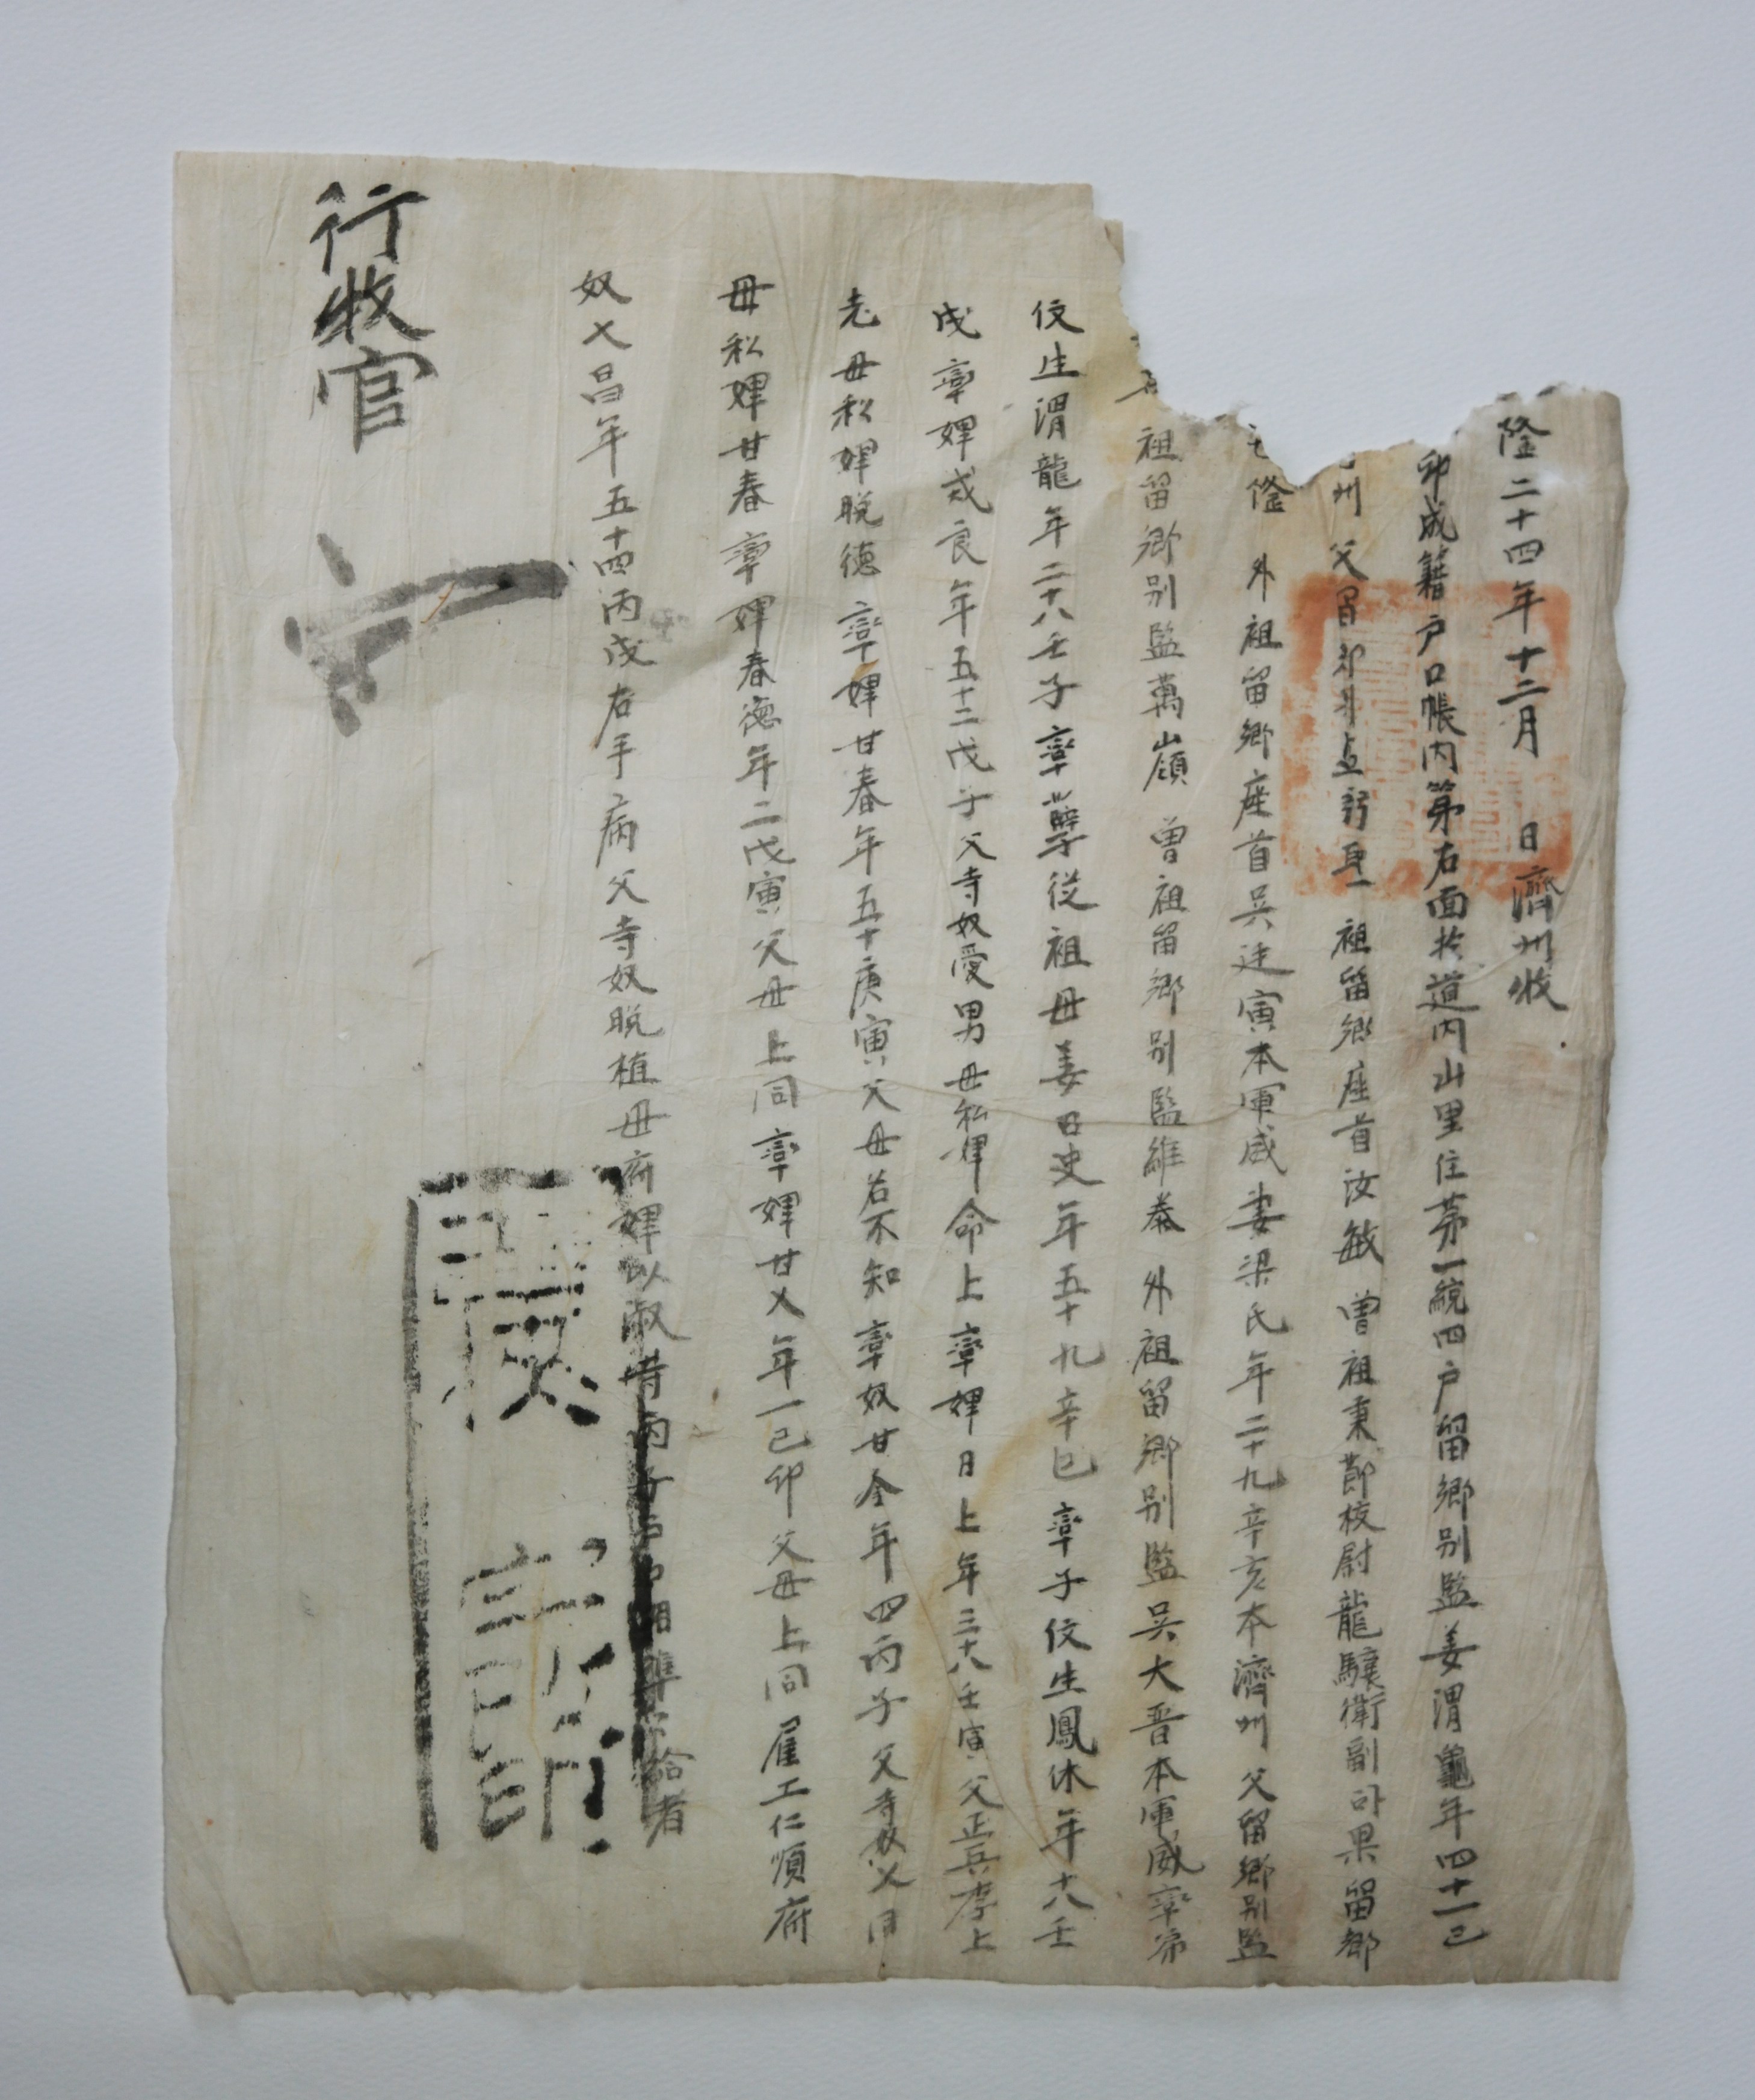 隆二十四年十二月　日濟州牧
卯成籍戶口帳內第右面於道內山里住第一統四戶留鄕别監姜渭龜年四十一己
州　父　祖留鄕座首汝敏　曾祖秉節校尉龍驤衛副司果留鄕
外祖留鄕座首吴廷寅本軍威　妻梁氏年二十九辛亥本濟州　父留鄕别監
祖留鄕别監萬嶺　曾祖留鄕别監維泰　外祖留鄕别監吴大晋本軍威率弟
伩生渭龍年二十八壬子率孽從祖母姜召史年五十九辛巳率子伩生鳳休年十八壬
戌率婢戎良年五十二戊子父寺奴愛男母私婢命上率婢日上年三十八壬寅父正兵李上
老母私婢脫德率婢甘春年五十庚寅父母名不知率奴甘金年四丙子父寺奴㐅同
母私婢甘春率婢春德年二戊寅父母上同率婢甘㐅年一己卯父母上同雇工仁順府
奴㐅昌年五十四丙戌右手病父寺奴脫植母府婢以淑昔丙子戶口相準宜給者
行牧官